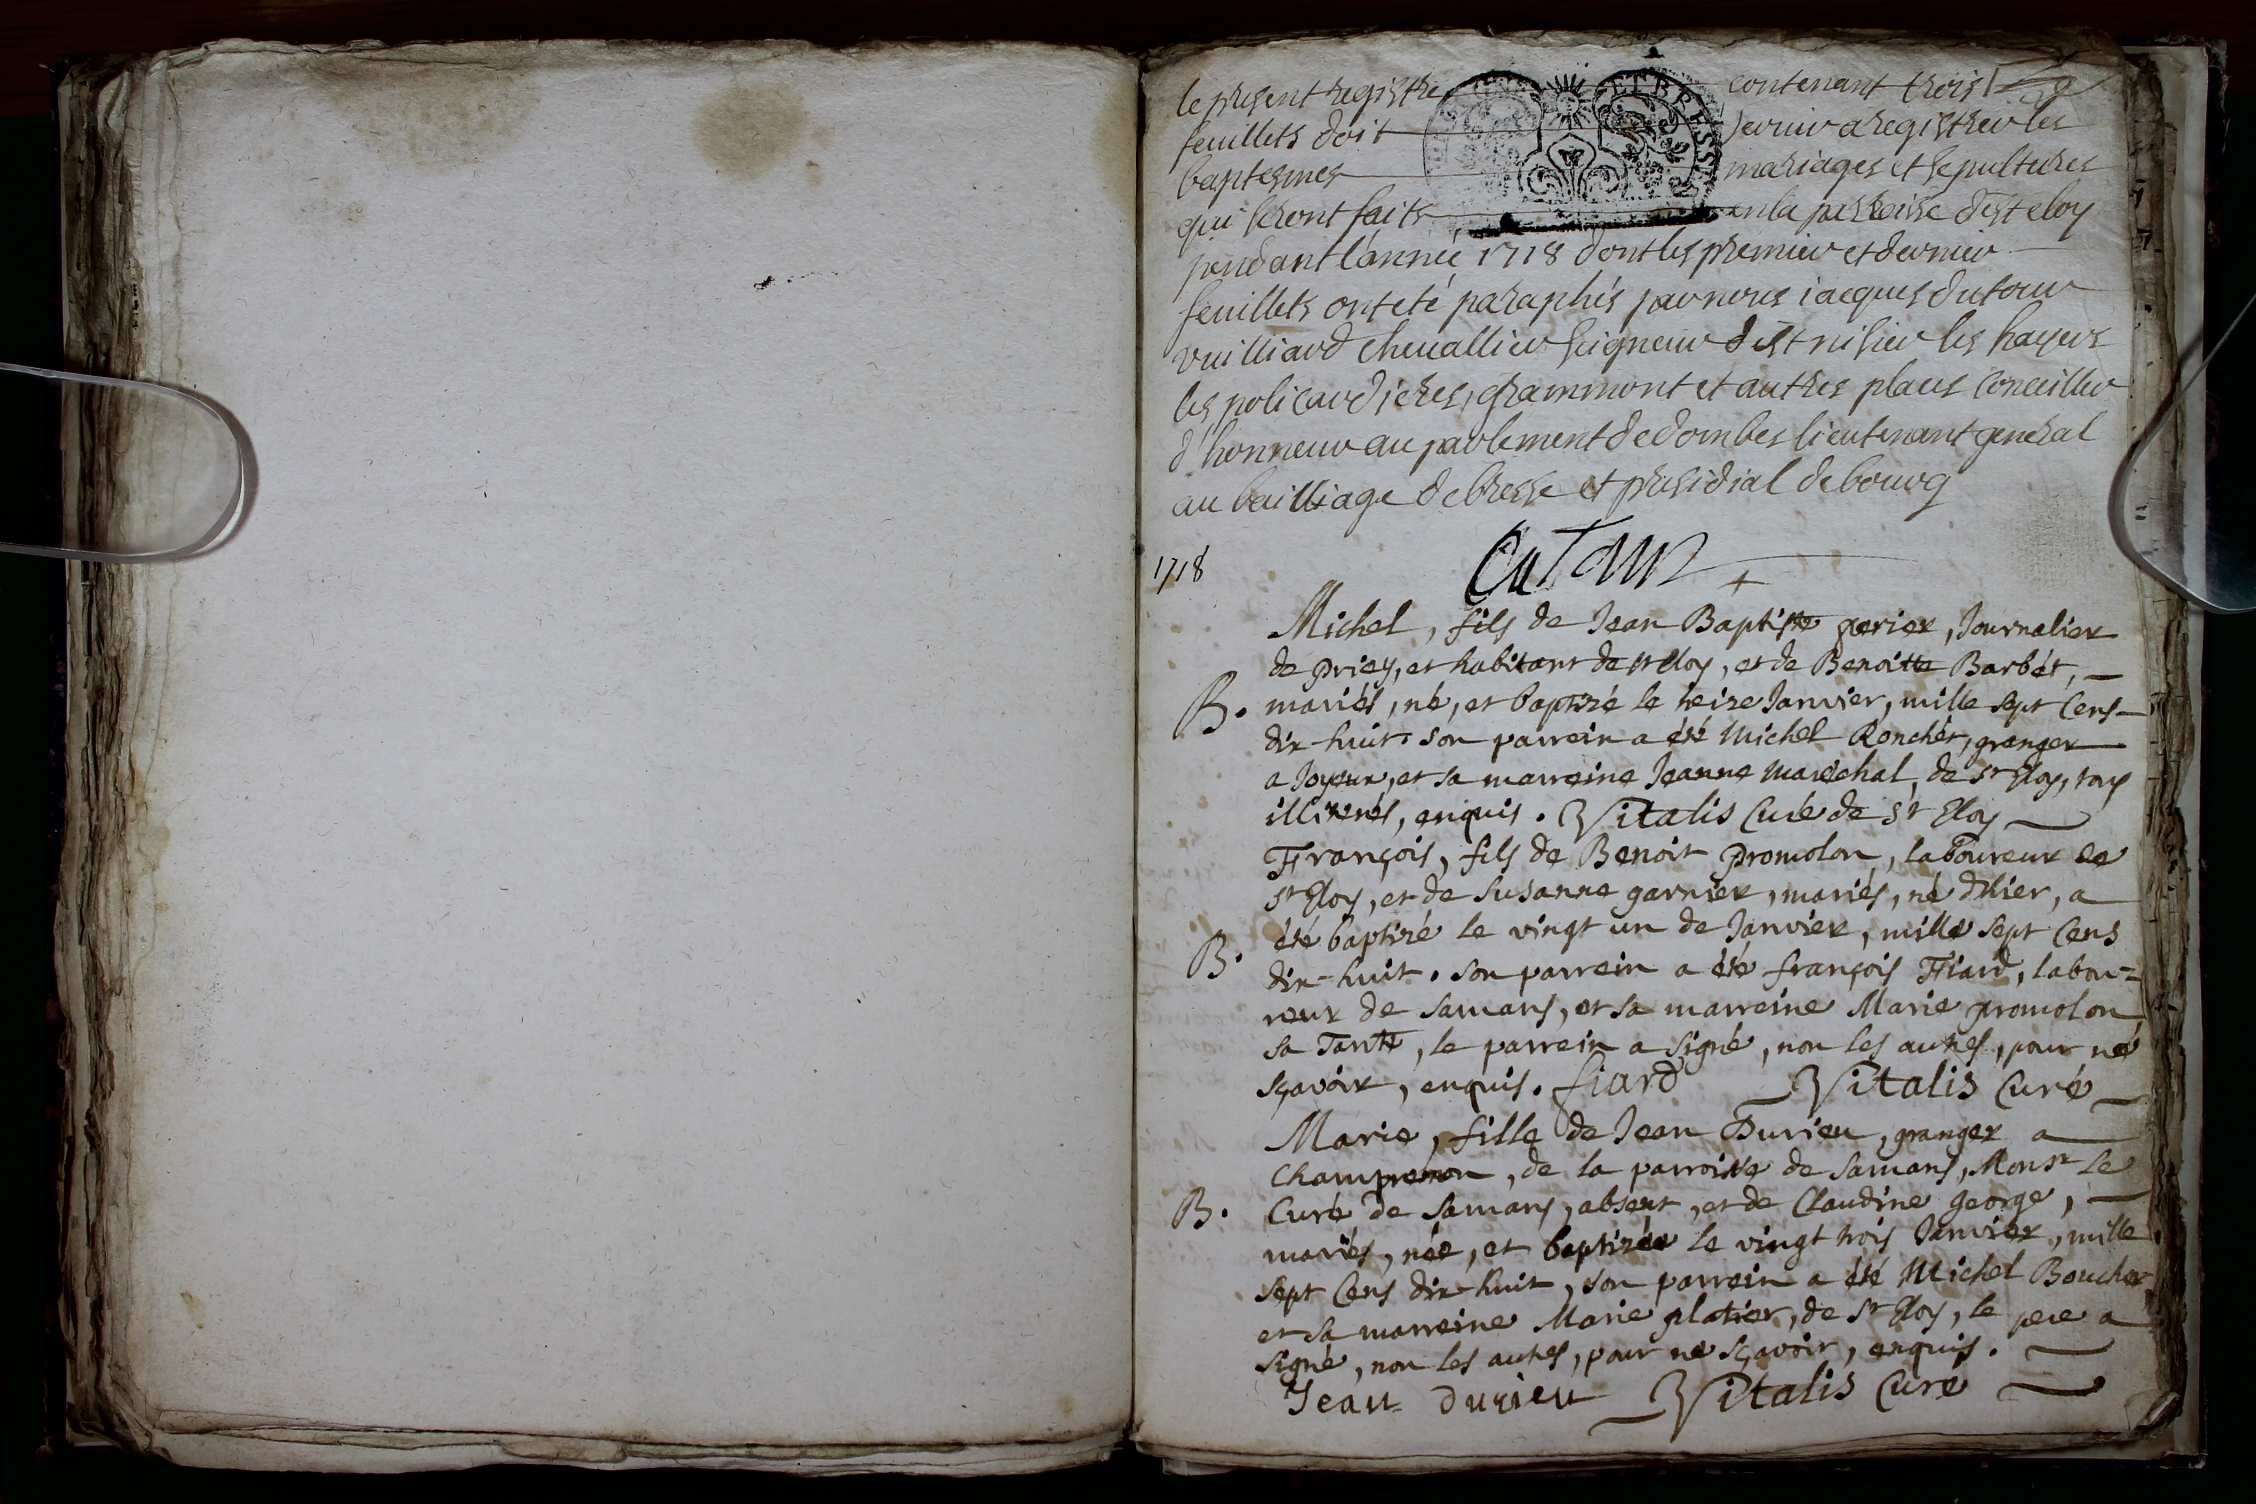 le present registre contenant trois
feuillets doit servir a registrer les
baptesmes mariages et sepultures
qui seront faits en la parroisse de st eloy
pendant l'année 1718 dont les premier et dernier
feuillets ont eté paraphés par nous iacques dutour
vuilliard chevallier seigneur de st nisier les
les grammont et autres places conseiller
d'honneur au parlement de dombes lieutenant general
au bailliage de bresse et presidial de bourg
1718
Dutour
Michel, fils de Jean Baptiste perier, Journalier
de priey, et habitant de st Eloy, et de Benoitte Barbét,
B. mariés, né, et baptizé le treize Janvier, mille sept Cens
dix-huit. son parrein a été Michel Ronchét, granger
a Joyeux, et sa marreine Jeanne Maréchal, de st Eloy, tous
illiterés, enquis. Vitalis Curé de st Eloy
François, fils de Benoit promolon, laboureur de
st Eloy, et de Susanne garnier, mariés, né d'hier, a
B. été baptizé le vingt un de Janvier, mille sept Cens
dix-huit. son parrein a été françois Fiard, labou=
reur de Samans, et sa marreine Marie promolon
sa Tante, le parrein a signé, non les autres, pour ne
sçavoir, enquis. fiard Vitalis Curé
Marie, fille de Jean Durieu, granger a
de la parroisse de Samans, Monsr le
B. Curé de Samans, absent, et de Claudine george,
mariés, née, et baptizée le vingt trois Janvier, mille
sept Cens dix-huit, son parrein a été Michel Boucher
et sa marreine Marie platier, de st Eloy, le pere a
signé, non les autres, pour ne sçavoir, enquis.
Jean durieu Vitalis Curé